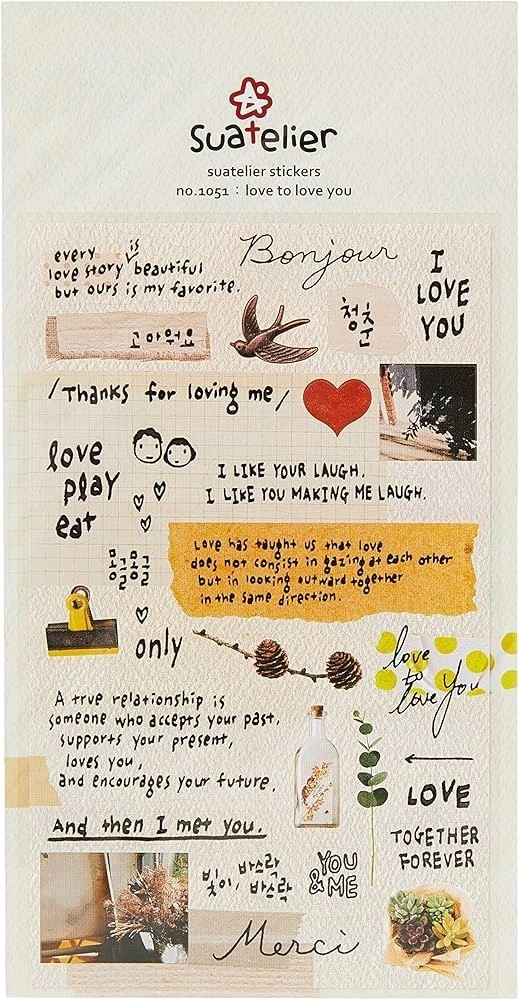 suatelier
suatelier stickers
no.1051 : love to love you
every is
love story beautiful
but ours is my favorite.
Bonjour
I
LOVE
YOU
고마워요
청
춘
/Thanks for loving me/
love
play
eat
I LIKE YOUR LAUGH.
I LIKE YOU MAKING ME LAUGH.
Love has taught us that love
does not consist in gazing at each other
but in looking outward together
in the same direction.
몽글
몽글
only
love
to
love you
A true relationship is
someone who accepts your past,
supports your present,
loves you,
and encourages your future.
And then I met you.
LOVE
TOGETHER
FOREVER
빛, 바스락
빛이, 바스락
YOU
& ME
Merci